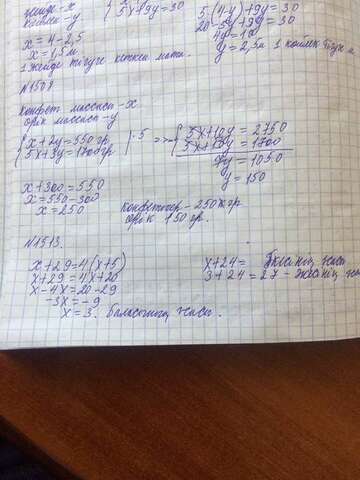 жейде - x
көйлек - y
{ 5x+9y=30
5(4-y)+9y=30
20-5y+9y=30
4y=10
y=2,5м 1 көйлек тігуге к
x=4-2,5
x=1,5м
1 жейде тігуге кеткен мата.
N1508
Конфет массасы - x
өрік массасы - y
{ x+2y=550гр
5x+3y=1700гр. } ·5 =>
{ 5x+10y=2750
5x+3y=1700
7y=1050
y=150
x+300=550
x=550-300
x=250
Конфеттер - 250кгр
өрік 150гр.
N1513.
x+29=4(x+5)
x+29=4x+20
x-4x=20-29
-3x=-9
x=3. баласының жасы.
x+24= әкесінің жасы
3+24=27 - әкесінің жа